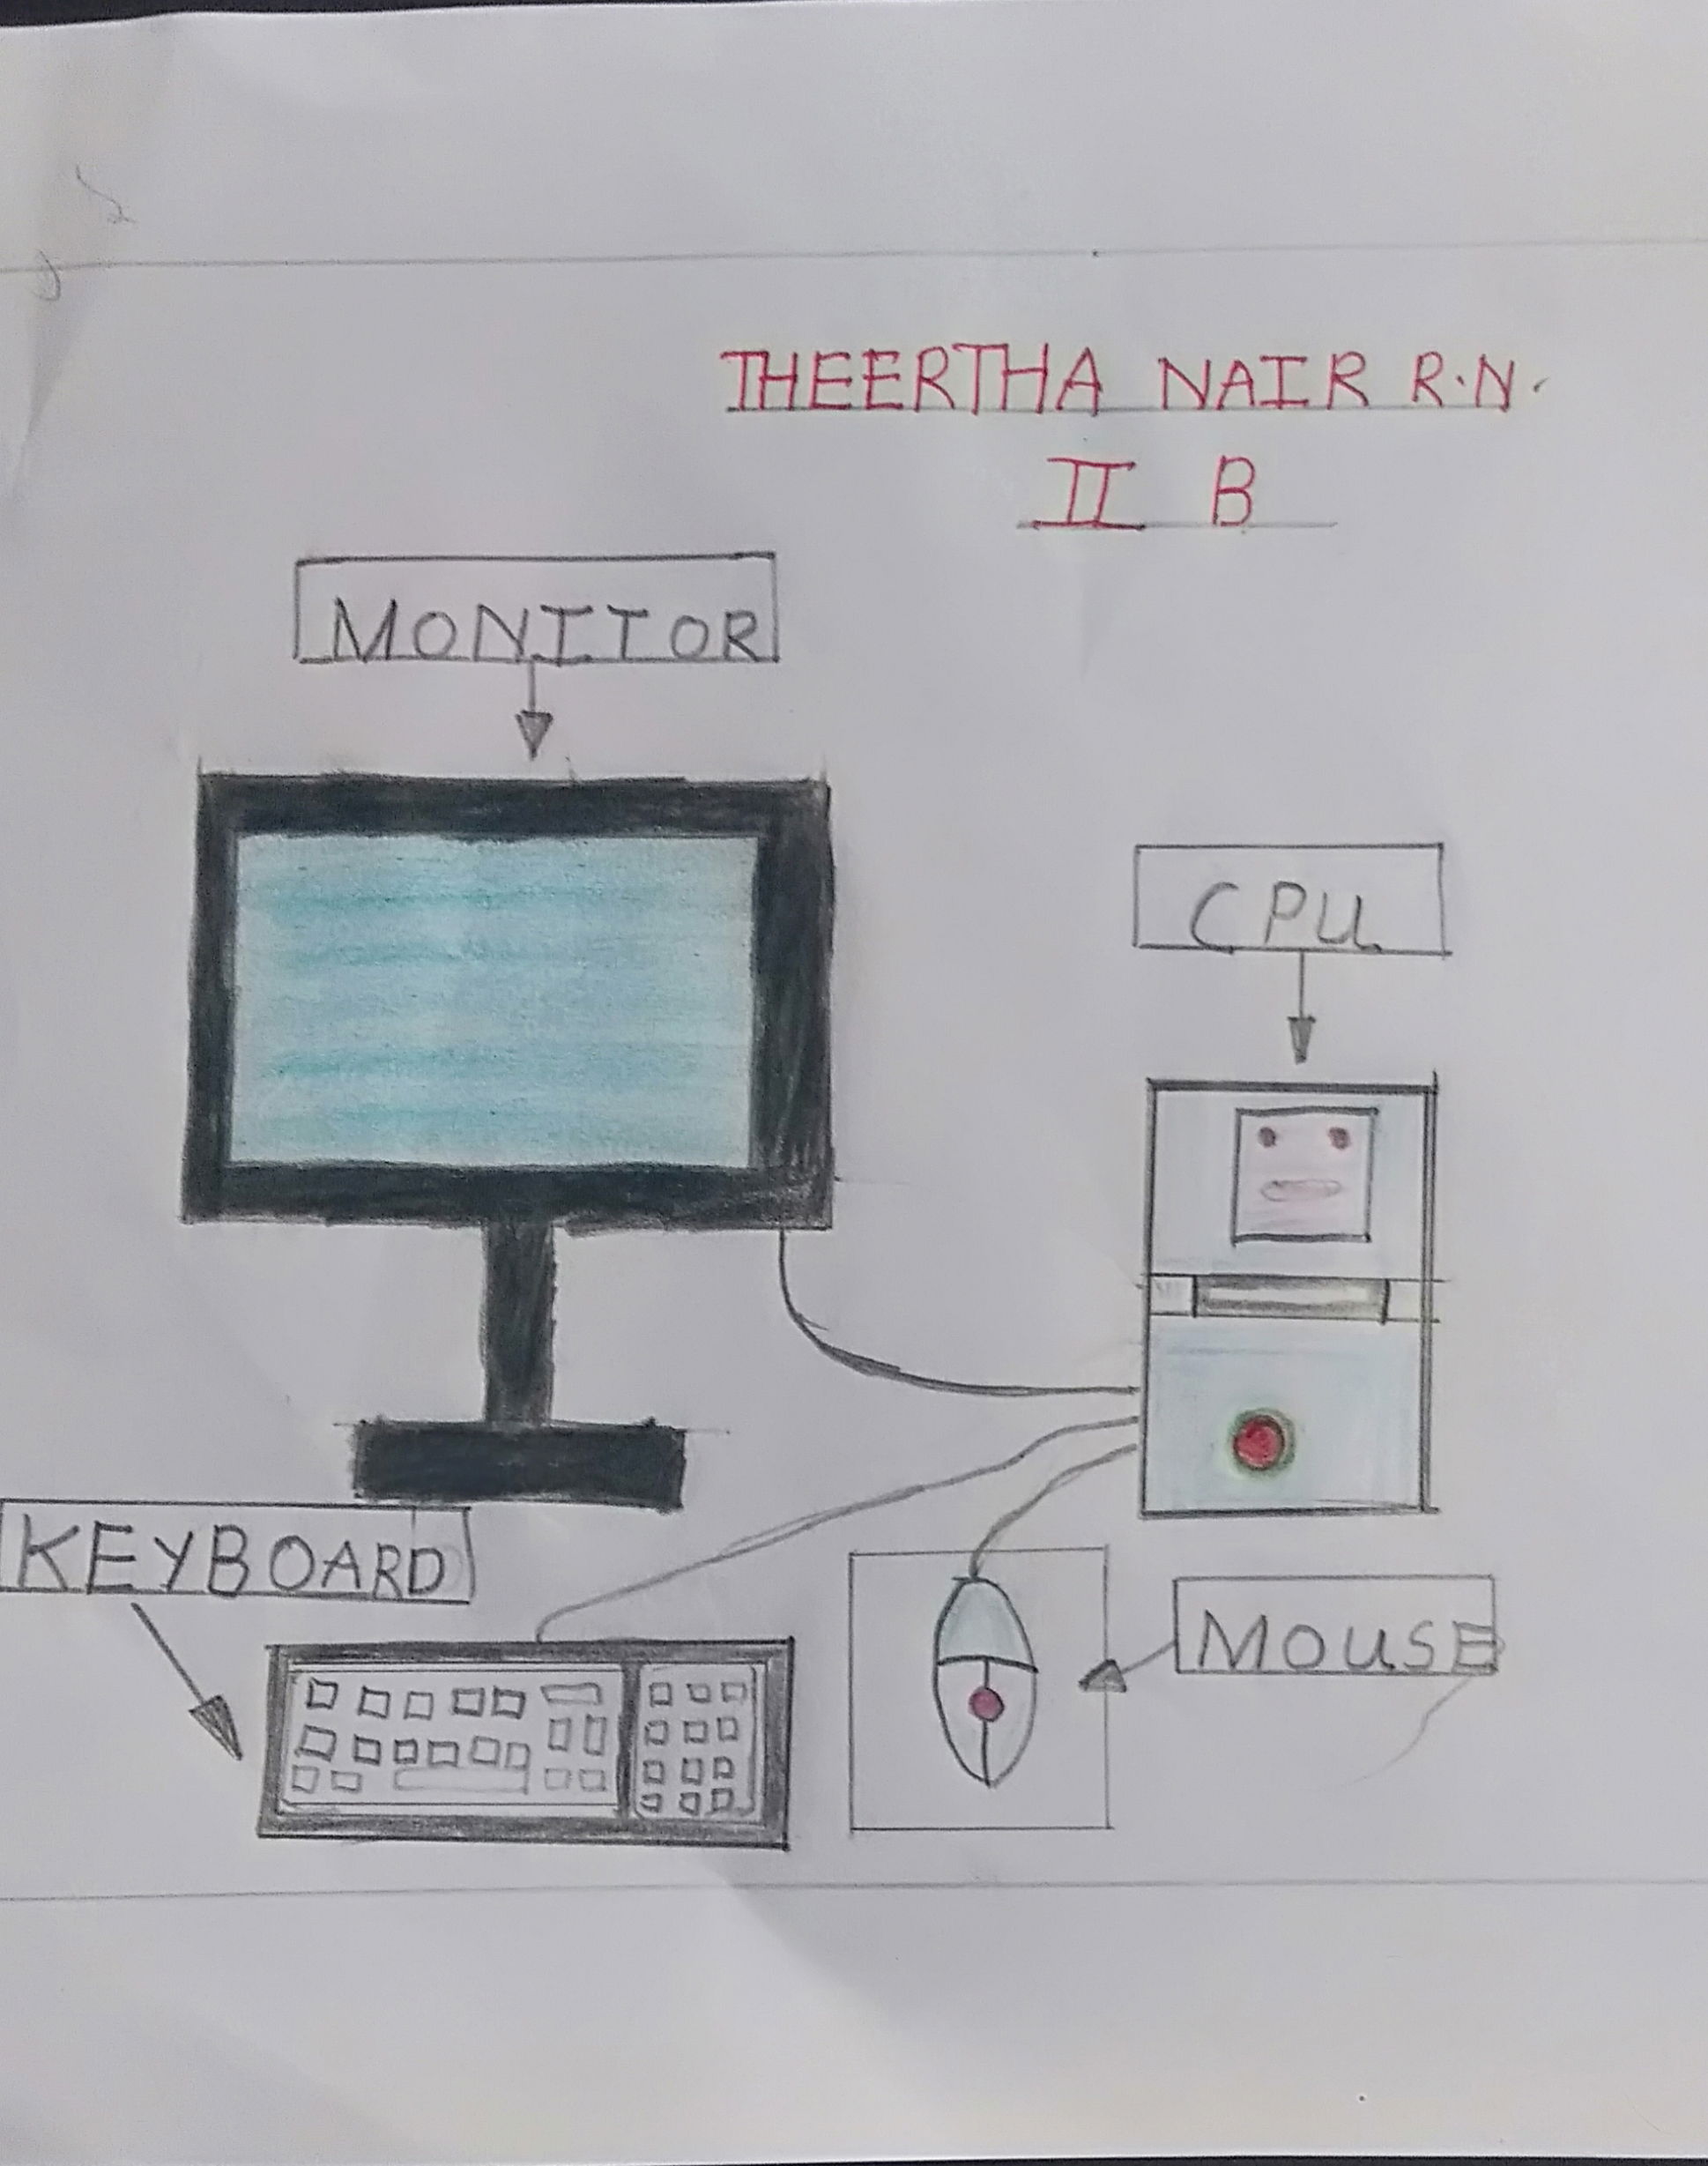 THEERTHA NAIR R.N.
II B
MONITOR
CPU
KEYBOARD
MOUSE